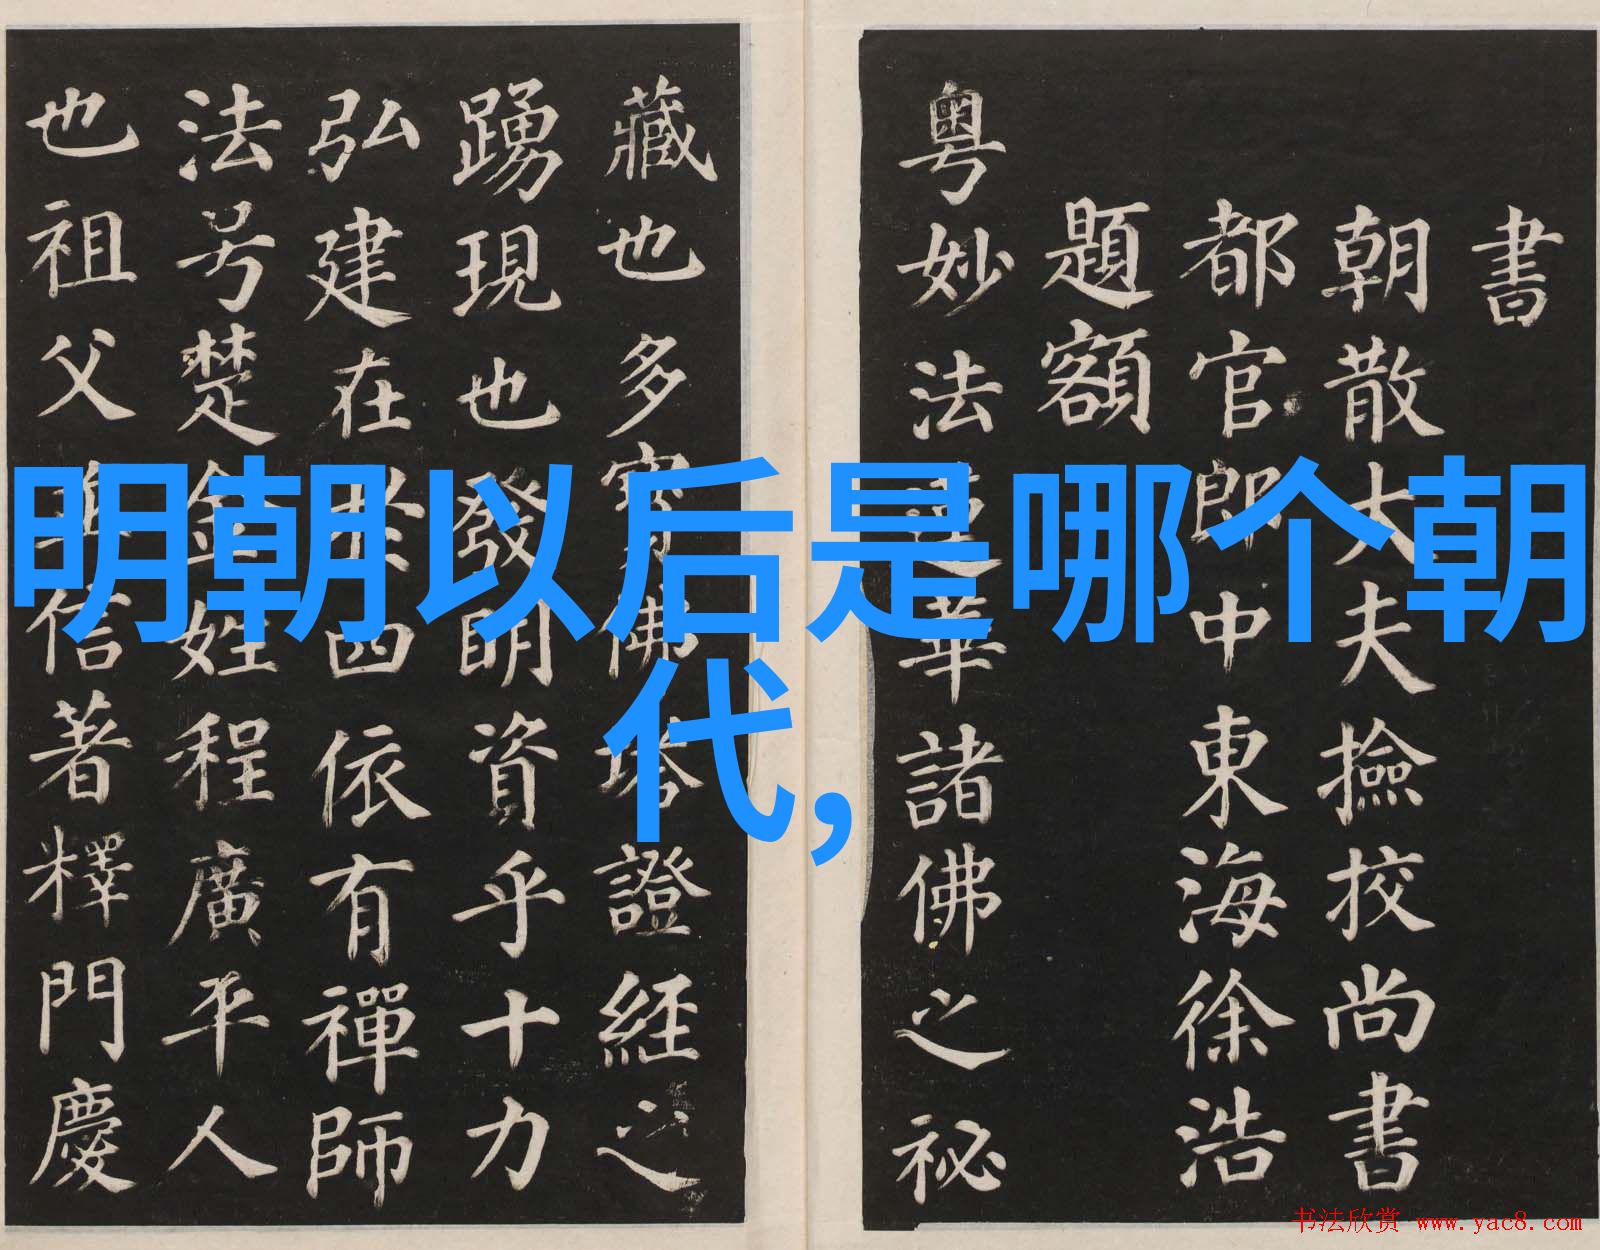 明朝以后是哪个朝
代,
書
朝散大夫撿挍尚書
都官郎中東海徐浩
題額
粵妙法蓮華諸佛之祕
藏也多寳佛塔證經之
踴現也發明資乎十力
弘建在扵四依有禪師
法号楚金姓程廣平人
也祖父並信著釋門慶
书法欣赏 www.yac8.com